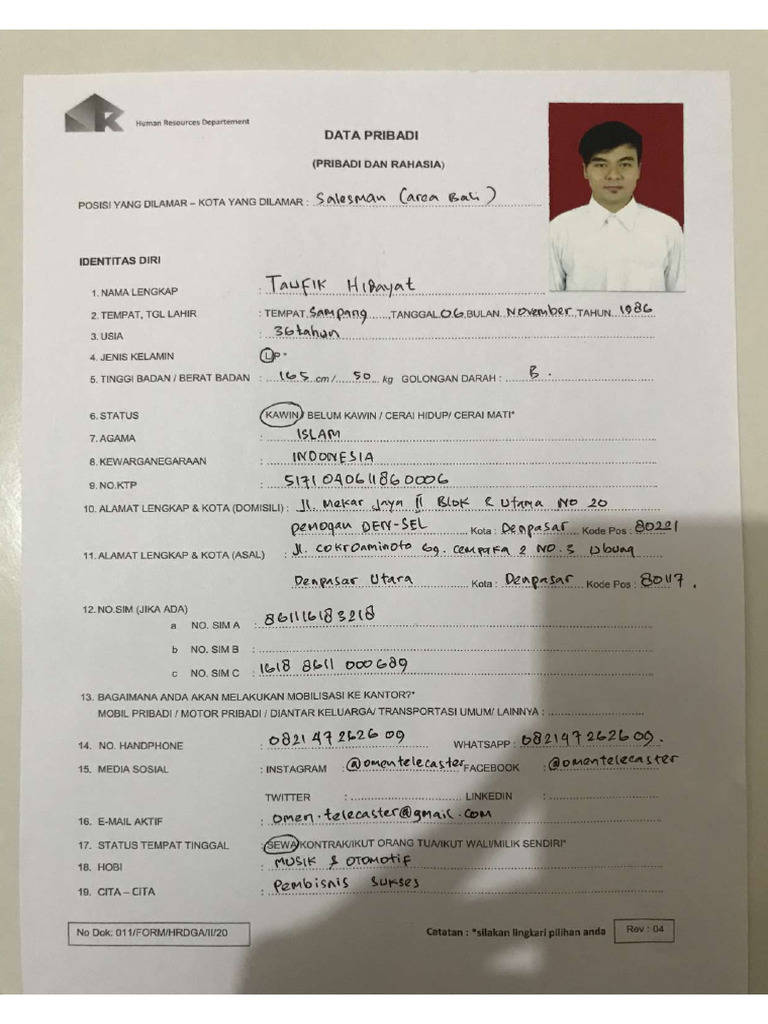 R Human Resources Departement
DATA PRIBADI
(PRIBADI DAN RAHASIA)
POSISI YANG DILAMAR – KOTA YANG DILAMAR : Salesman (area Bali)
IDENTITAS DIRI
1. NAMA LENGKAP : TAUFIK HIDAYAT
2. TEMPAT, TGL LAHIR : TEMPAT Sampang, TANGGAL 06, BULAN November, TAHUN 1986
3. USIA : 36 tahun
4. JENIS KELAMIN : L/P*
5. TINGGI BADAN / BERAT BADAN : 165 cm / 50 kg GOLONGAN DARAH : B.
6. STATUS : KAWIN / BELUM KAWIN / CERAI HIDUP/ CERAI MATI*
7. AGAMA : ISLAM
8. KEWARGANEGARAAN : INDONESIA
9. NO.KTP : 5171 040611860006
10. ALAMAT LENGKAP & KOTA (DOMISILI) : Jl. Mekar Jaya II Blok E Utama NO 20
Pemogan DEN-SEL Kota : Denpasar Kode Pos : 80221
11. ALAMAT LENGKAP & KOTA (ASAL) : Jl. Cokroaminoto Gg. Cempaka 2 NO. 3 Ubung
Denpasar Utara Kota : Denpasar Kode Pos : 80117.
12. NO.SIM (JIKA ADA)
a NO. SIM A : 861116183218
b NO. SIM B :
c NO. SIM C : 1618 8611 000689
13. BAGAIMANA ANDA AKAN MELAKUKAN MOBILISASI KE KANTOR?*
MOBIL PRIBADI / MOTOR PRIBADI / DIANTAR KELUARGA/ TRANSPORTASI UMUM/ LAINNYA :
14. NO. HANDPHONE : 082147262609 WHATSAPP : 082147262609.
15. MEDIA SOSIAL : INSTAGRAM : @omentelecaster FACEBOOK : @omentelecaster
TWITTER : LINKEDIN :
16. E-MAIL AKTIF : omen.telecaster@gmail.com
17. STATUS TEMPAT TINGGAL : SEWA/KONTRAK/IKUT ORANG TUA/IKUT WALI/MILIK SENDIRI*
18. HOBI : MUSIK & OTOMOTIF
19. CITA – CITA : Pembisnis Sukses
No Dok: 011/FORM/HRDGA/II/20 Catatan : *silakan lingkari pilihan anda Rev : 04